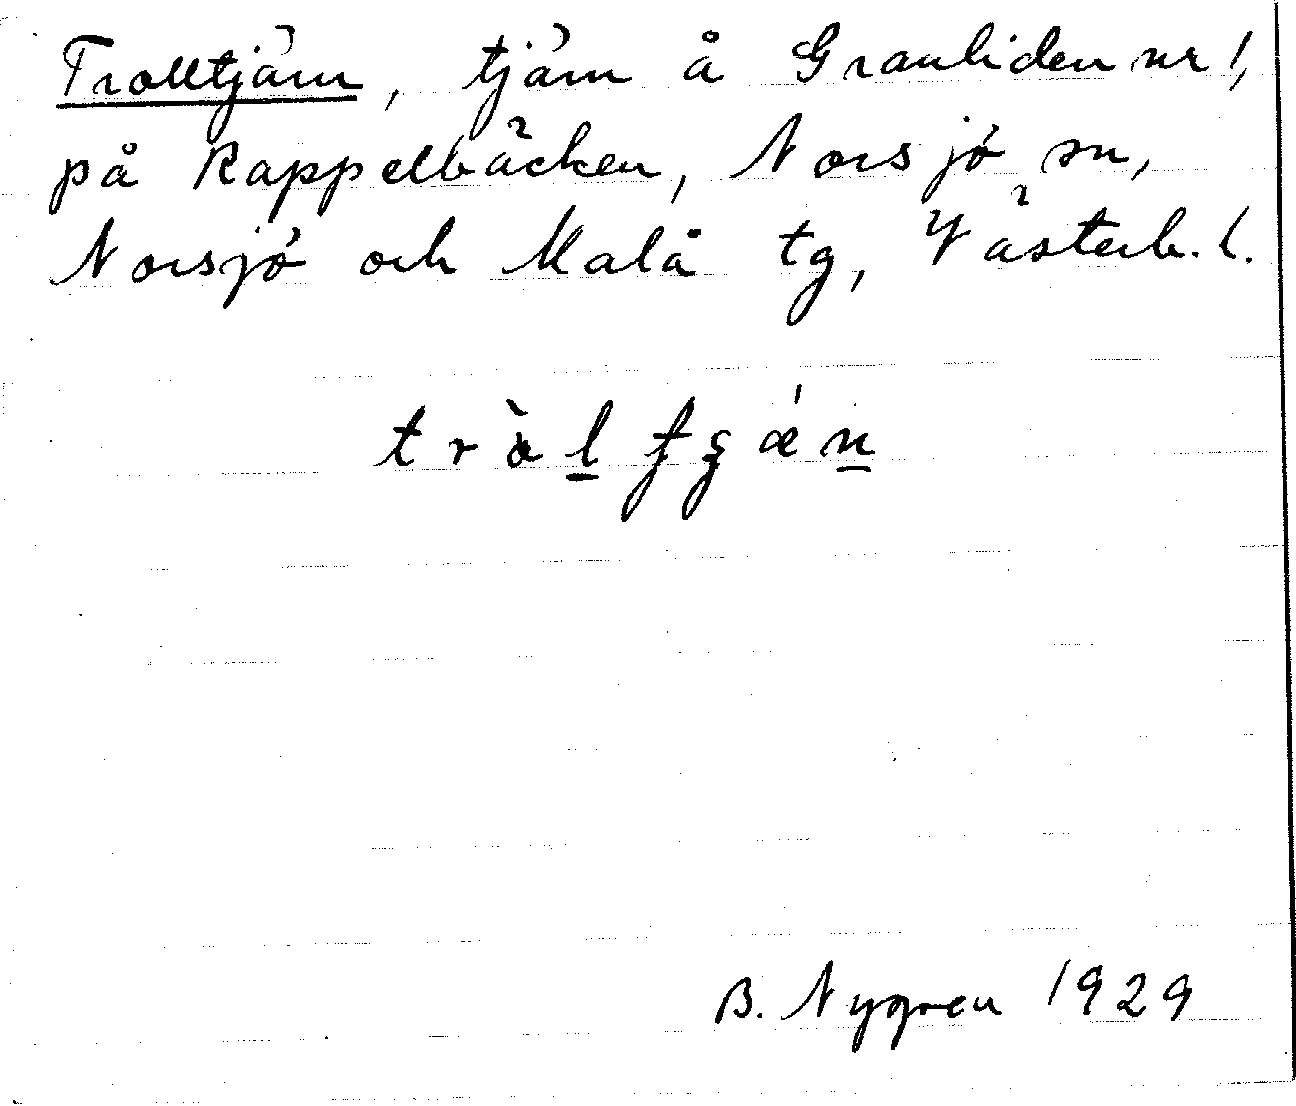 Trolltjärn, tjärn å Granliden nr 1,
på Kappelbäcken, Norsjö sn,
Norsjö och Malå tg, Västerb. l.
B. Nygren 1929